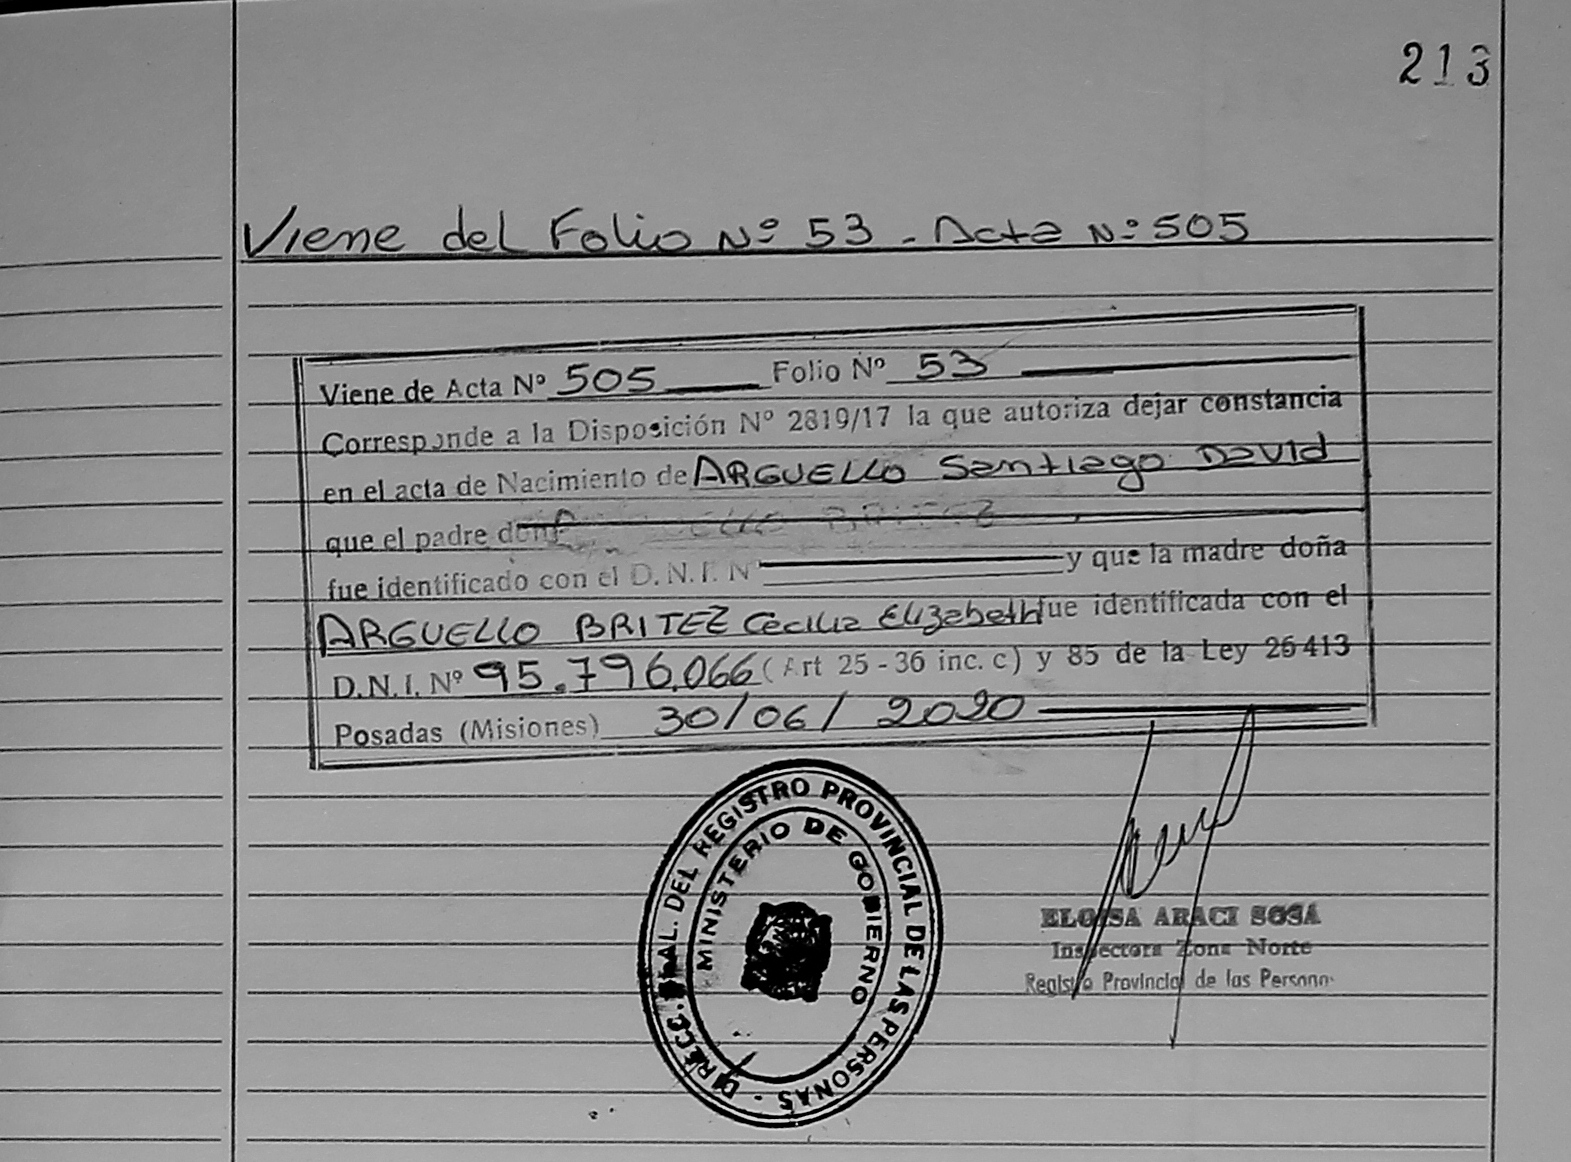 213
Viene del Folio Nº 53 - Acta Nº 505
Viene de Acta Nº 505 Folio Nº 53
Corresponde a la Disposición Nº 2819/17 la que autoriza dejar constancia
en el acta de Nacimiento de ARGUELLO Santiago David
que el padre don
fue identificado con el D. N. I. N y que la madre doña
ARGUELLO BRITEZ Cecilia Elizabeth fue identificada con el
D.N.I. Nº 95.796.066 (Art 25 - 36 inc. c) y 85 de la Ley 26413
Posadas (Misiones) 30/06/2020
DIRECC. GRAL. DEL REGISTRO PROVINCIAL DE LAS PERSONAS -
MINISTERIO DE GOBIERNO
ELOISA ARACI SOSA
Inspectora Zona Norte
Registro Provincial de las Persona